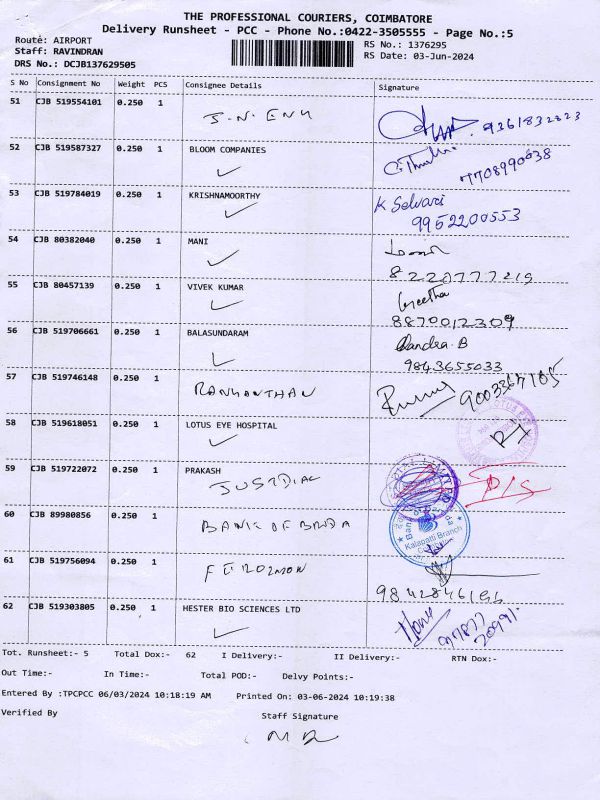 THE PROFESSIONAL COURIERS, COIMBATORE
Delivery Runsheet - PCC - Phone No.:0422-3505555 - Page No.:5
Route: AIRPORT
Staff: RAVINDRAN
DRS No.: DCJB137629505
RS No.: 1376295
RS Date: 03-Jun-2024
S No Consignment No Weight PCS Consignee Details Signature
51 CJB 519554101 0.250 1
9361832823
52 CJB 519587327 0.250 1 BLOOM COMPANIES
7708990638
53 CJB 519784019 0.250 1 KRISHNAMOORTHY K Selvari
9952200553
54 CJB 80382040 0.250 1 MANI
8220777219
55 CJB 80457139 0.250 1 VIVEK KUMAR Geetha
8870012309
56 CJB 519706661 0.250 1 BALASUNDARAM Chandra.B
9843655033
57 CJB 519746148 0.250 1 RANGANTHAN
58 CJB 519618051 0.250 1 LOTUS EYE HOSPITAL
59 CJB 519722072 0.250 1 PRAKASH
JUSTDIAL LIMITED
60 CJB 89980856 0.250 1 BANK OF BRDA
Kalapatti Branch
61 CJB 519756094 0.250 1
62 CJB 519303805 0.250 1 HESTER BIO SCIENCES LTD
Tot. Runsheet:- 5 Total Dox:- 62 I Delivery:- II Delivery:- RTN Dox:-
Out Time:- In Time:- Total POD:- Delvy Points:-
Entered By :TPCPCC 06/03/2024 10:18:19 AM Printed On: 03-06-2024 10:19:38
Verified By Staff Signature